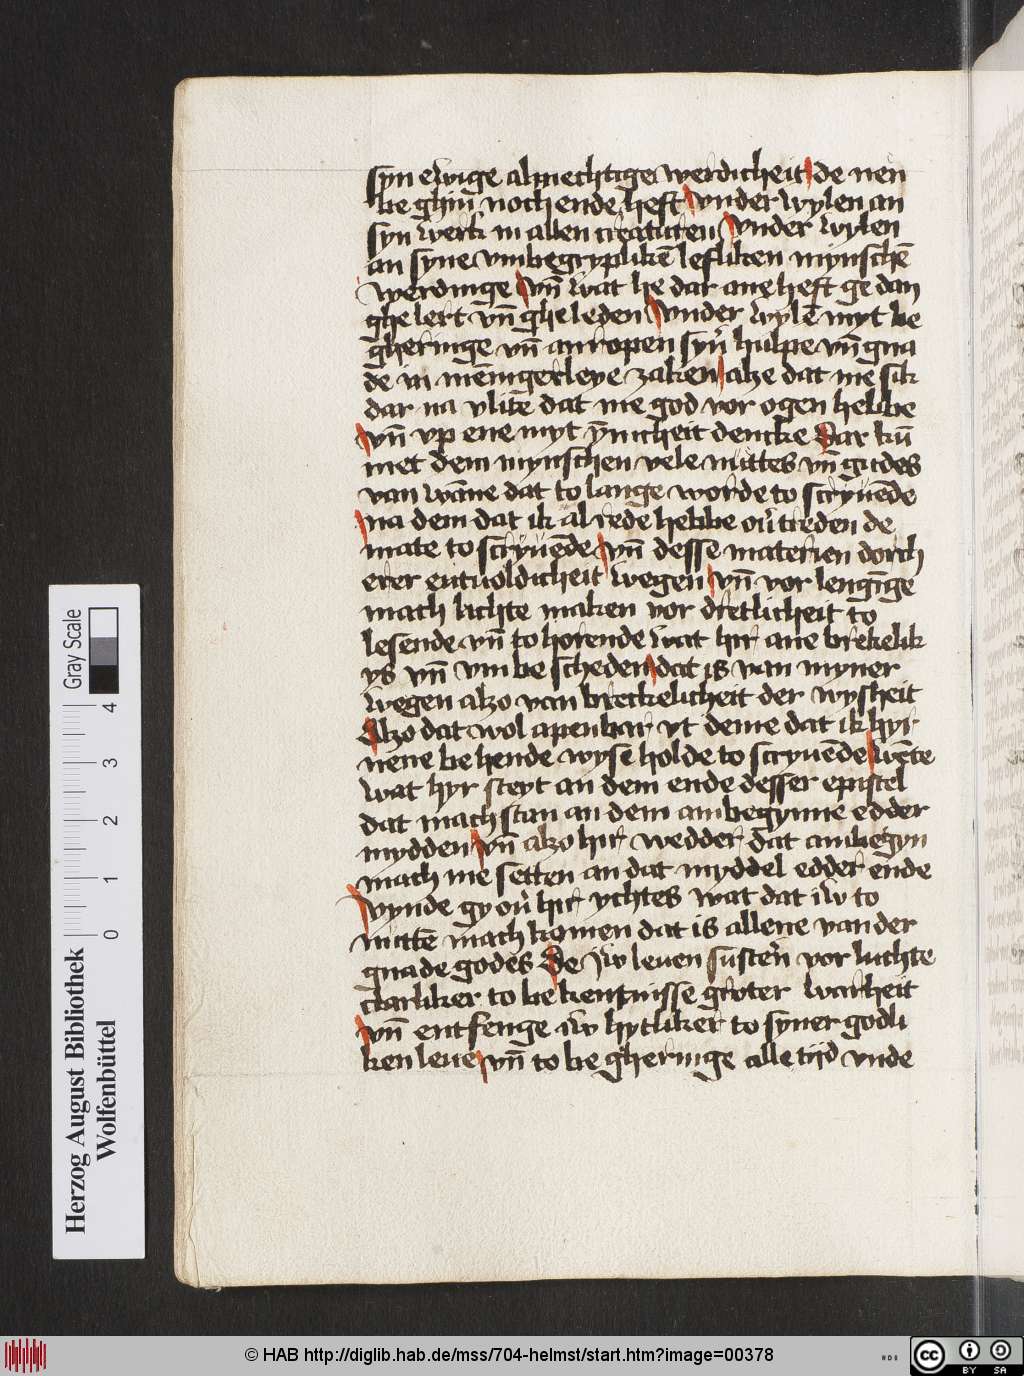 syn ewige almechtige werdicheit de nen
be ghiñ noch ende heft vnder wylen an
syn werk in allen creaturen Vnder wylen
an syne vmbegryplikē lefliken mynschē
werdinge vn̄ wat he dar ane heft ge dan
ghe lert vn̄ ghe leden Vnder wylē myt be
gheringe vn̄ anropen syn̄ hulpe vn̄ gna
de in mēnigerleye zaken alze dat me sik
dar na vlitē dat me god vor ogen hebbe
vn̄ vp ene myt ȳnicheit dencke Dar kū
met dem mynschen vele nuttes vn̄ gudes
van wāne dat to lange worde to scryuēde
na dem dat ik al rede hebbe ou̓ treden de
mate to scryuēde vn̄ desse materien dorch
erer entuoldicheit wegen vn̄ vor lengīge
mach lichte maken vor dretlicheit to
lesende vn̄ to horende wat hir ane brekelik
ys vn̄ vm be scheden dat is van myner
wegen alzo van breckelicheit der wysheit
Alzo dat wol apenbar yt deme dat ik hyr
nene be hende wyse holde to scryuēde wēte
wat hyr steyt an dem ende desser epistel
dat mach stan an dem ambegynne edder
mydden vn̄ alzo hir wedder dat ambegyn
mach me setten an dat myddel edder ende
vynde gy ou̓ hir ychtes wat dat iw to
nuttē mach komen dat is allene van der
gnade godes De iw leuen susteᷣn vor luchte
clarliker to be kentnisse groter warheit
vn̄ entfenge iw hytliker to syner godli
ken leue vn̄ to be gheringe alle tijd vnde
Herzog August Bibliothek
Wolfenbüttel
Gray Scale
0 1 2 3 4
© HAB http://diglib.hab.de/mss/704-helmst/start.htm?image=00378
cc BY SA